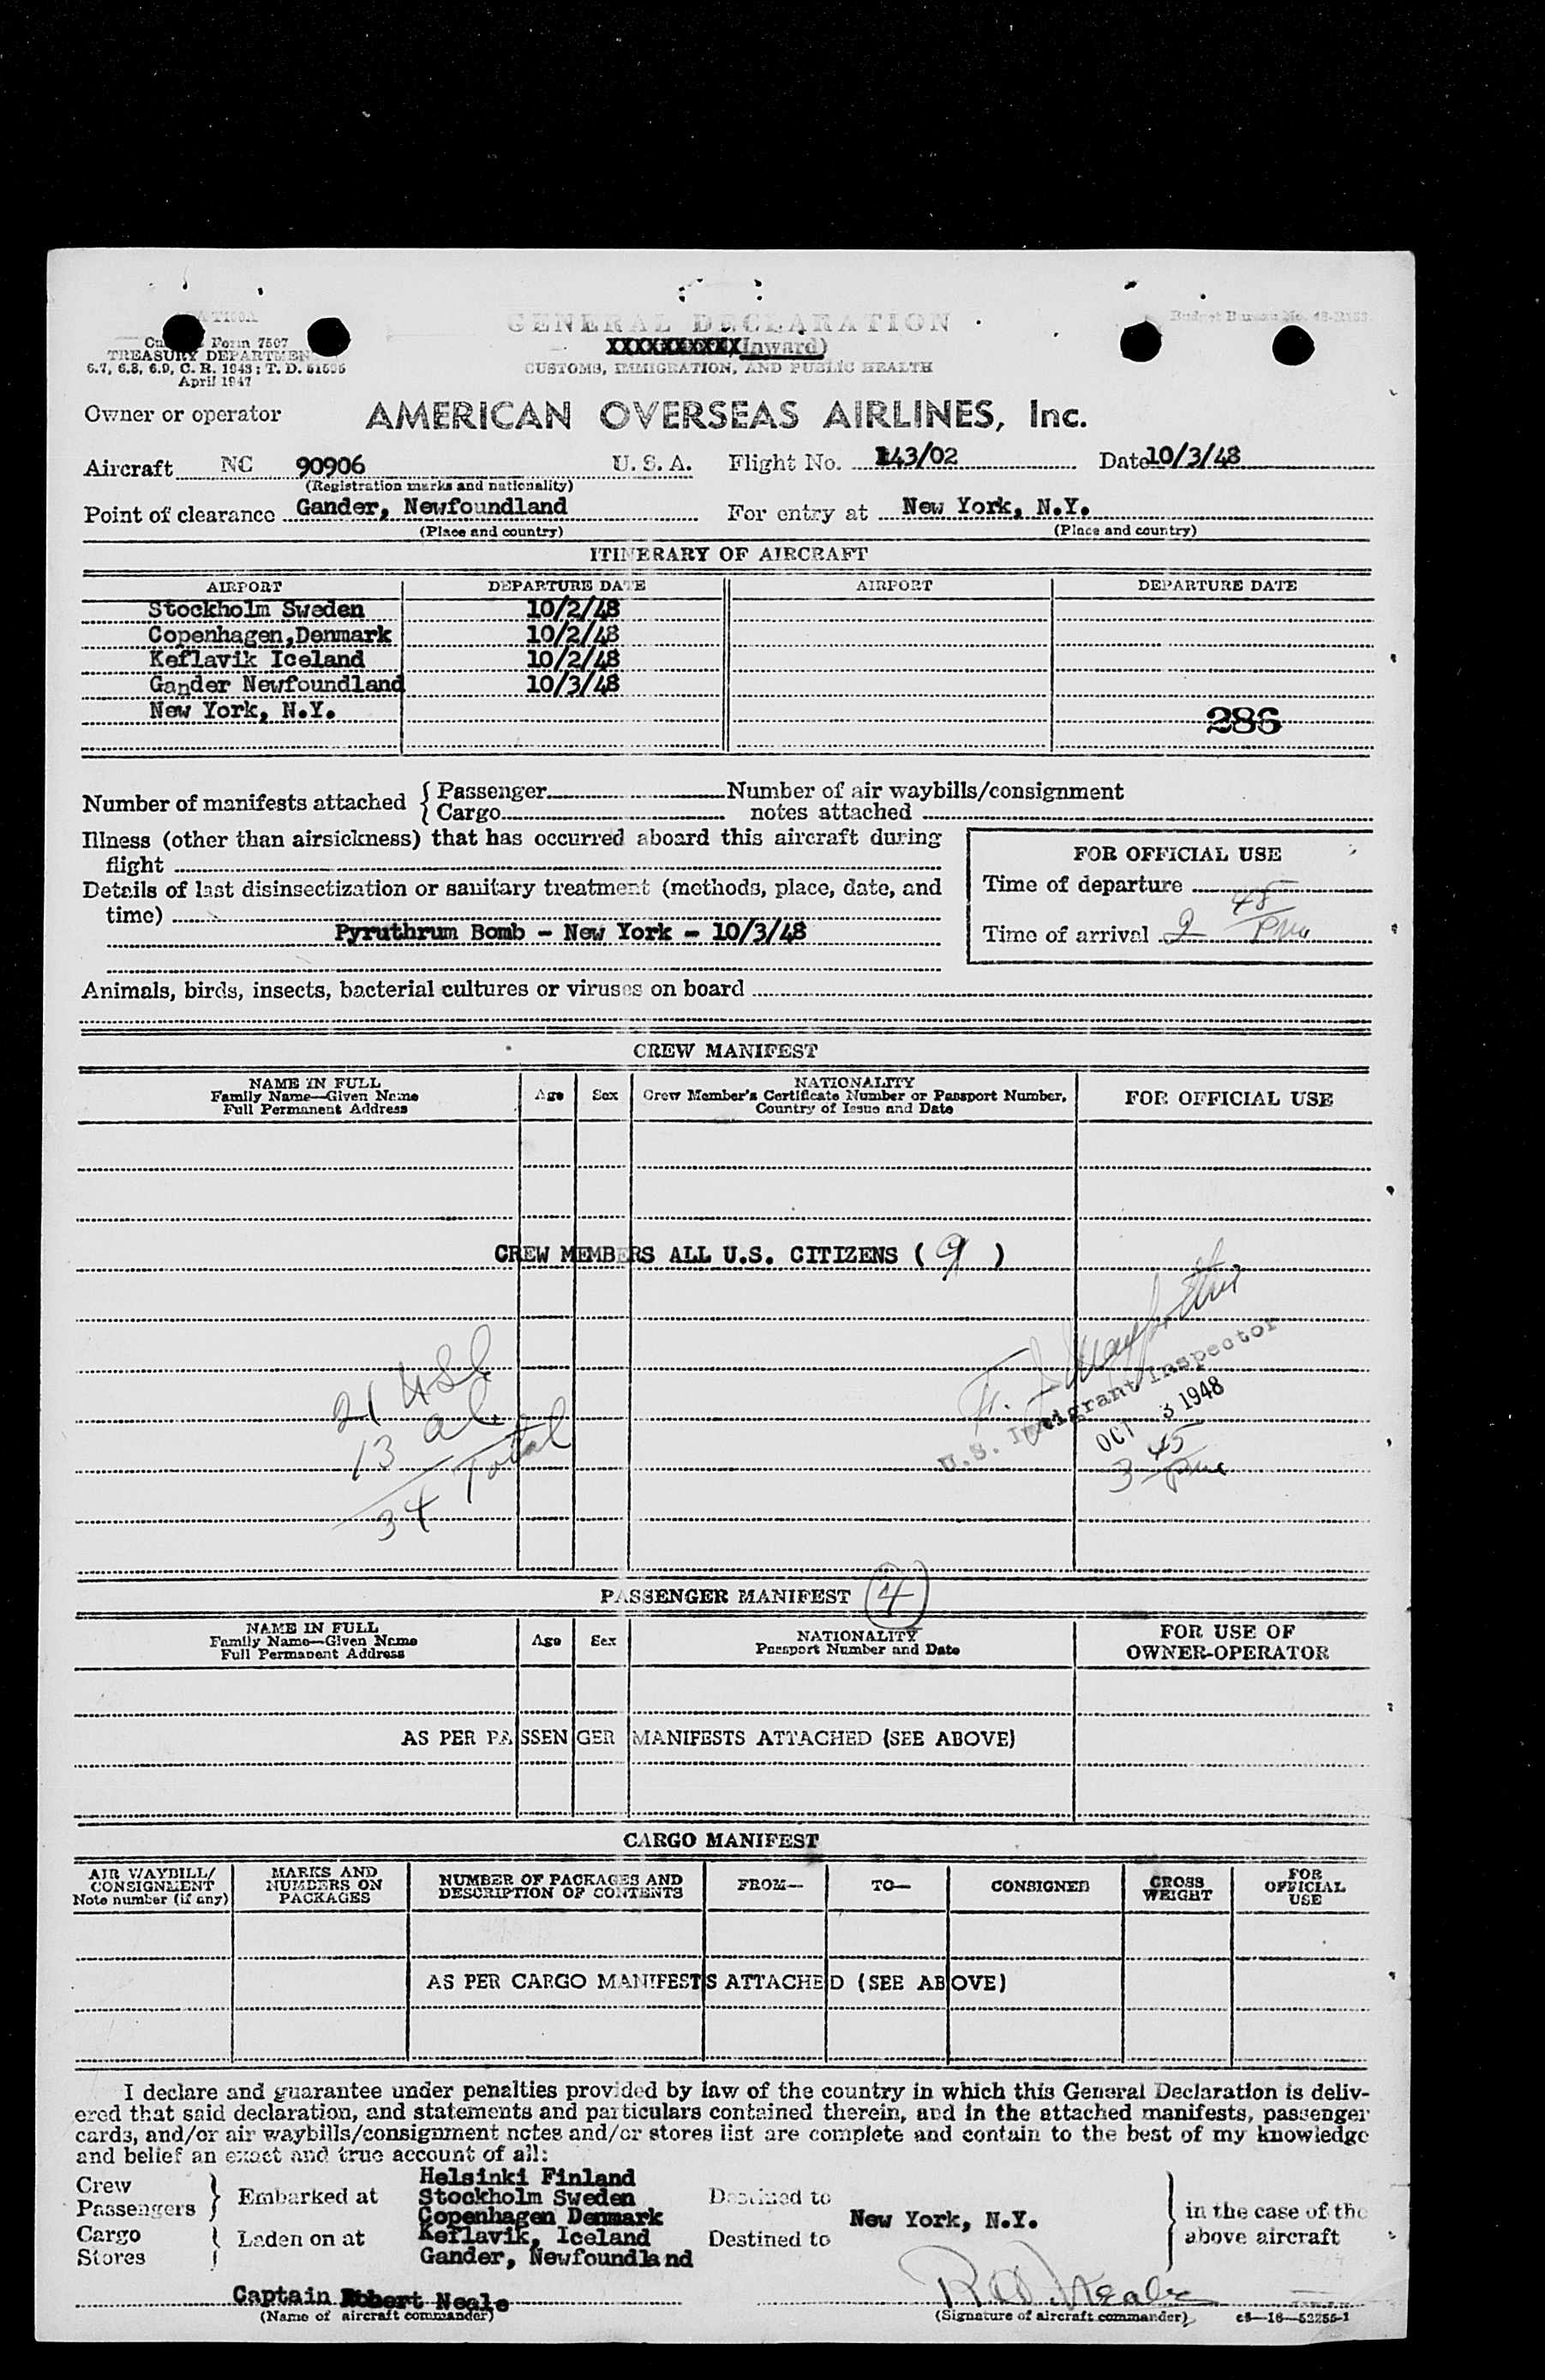 GENERAL DECLARATION
XXXXXXXXXX(Inward)
CUSTOMS, IMMIGRATION, AND PUBLIC HEALTH
Form 7507
TREASURY DEPARTMEN
6.7, 6.8, 6.9, C. R. 1943; T. D. 51505
April 1947
Owner or operator AMERICAN OVERSEAS AIRLINES, Inc.
Aircraft NC 90906 U. S. A. Flight No. 143/02 Date 10/3/48
(Registration marks and nationality)
Point of clearance Gander, Newfoundland For entry at New York, N.Y.
(Place and country) (Place and country)
ITINERARY OF AIRCRAFT
AIRPORT DEPARTURE DATE AIRPORT DEPARTURE DATE
Stockholm Sweden 10/2/48
Copenhagen,Denmark 10/2/48
Keflavik Iceland 10/2/48
Gander Newfoundland 10/3/48
New York, N.Y. 286
Number of manifests attached { Passenger Number of air waybills/consignment
Cargo notes attached
Illness (other than airsickness) that has occurred aboard this aircraft during
flight
Details of last disinsectization or sanitary treatment (methods, place, date, and
time)
Pyruthrum Bomb - New York - 10/3/48
FOR OFFICIAL USE
Time of departure
Time of arrival 2 48 PM
Animals, birds, insects, bacterial cultures or viruses on board
CREW MANIFEST
NAME IN FULL
Family Name—Given Name
Full Permanent Address
Age Sex
NATIONALITY
Crew Member's Certificate Number or Passport Number,
Country of Issue and Date
FOR OFFICIAL USE
CREW MEMBERS ALL U.S. CITIZENS ( 9 )
21 USC
13 al.
34 Total
U.S. Immigrant Inspector
OCT 3 1948
3 45 PM
PASSENGER MANIFEST (4)
NAME IN FULL
Family Name—Given Name
Full Permanent Address
Age Sex
NATIONALITY
Passport Number and Date
FOR USE OF
OWNER-OPERATOR
AS PER PASSENGER MANIFESTS ATTACHED (SEE ABOVE)
CARGO MANIFEST
AIR WAYBILL/
CONSIGNMENT
Note number (if any)
MARKS AND
NUMBERS ON
PACKAGES
NUMBER OF PACKAGES AND
DESCRIPTION OF CONTENTS
FROM— TO— CONSIGNED
GROSS
WEIGHT
FOR
OFFICIAL
USE
AS PER CARGO MANIFESTS ATTACHED (SEE ABOVE)
I declare and guarantee under penalties provided by law of the country in which this General Declaration is deliv-
ered that said declaration, and statements and particulars contained therein, and in the attached manifests, passenger
cards, and/or air waybills/consignment notes and/or stores list are complete and contain to the best of my knowledge
and belief an exact and true account of all:
Crew
Passengers } Embarked at
Cargo
Stores } Laden on at
Helsinki Finland
Stockholm Sweden
Copenhagen Denmark
Keflavik, Iceland
Gander, Newfoundland
Destined to
Destined to
New York, N.Y.
in the case of the
above aircraft
Captain Robert Neale R Neale
(Name of aircraft commander) (Signature of aircraft commander) c8—16—52255-1